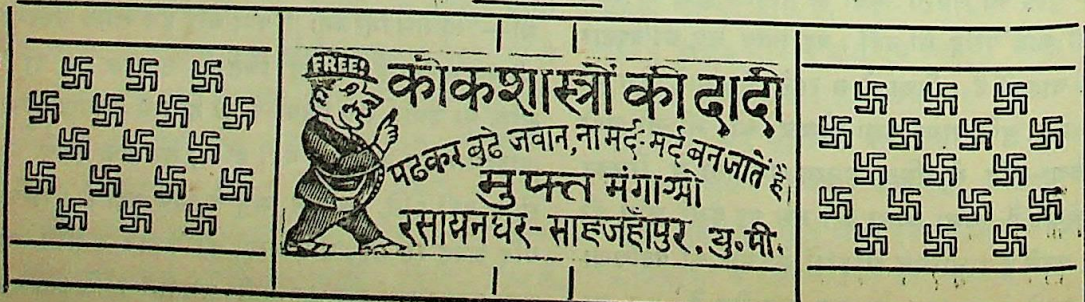 FREE!
कोकशास्त्रों की दादी
पढकर बुढे जवान, ना मर्द-मर्द बन जाते हैं।
मुफ्त मंगाओ
रसायनघर-साहजहाँपुर. यु. पी.